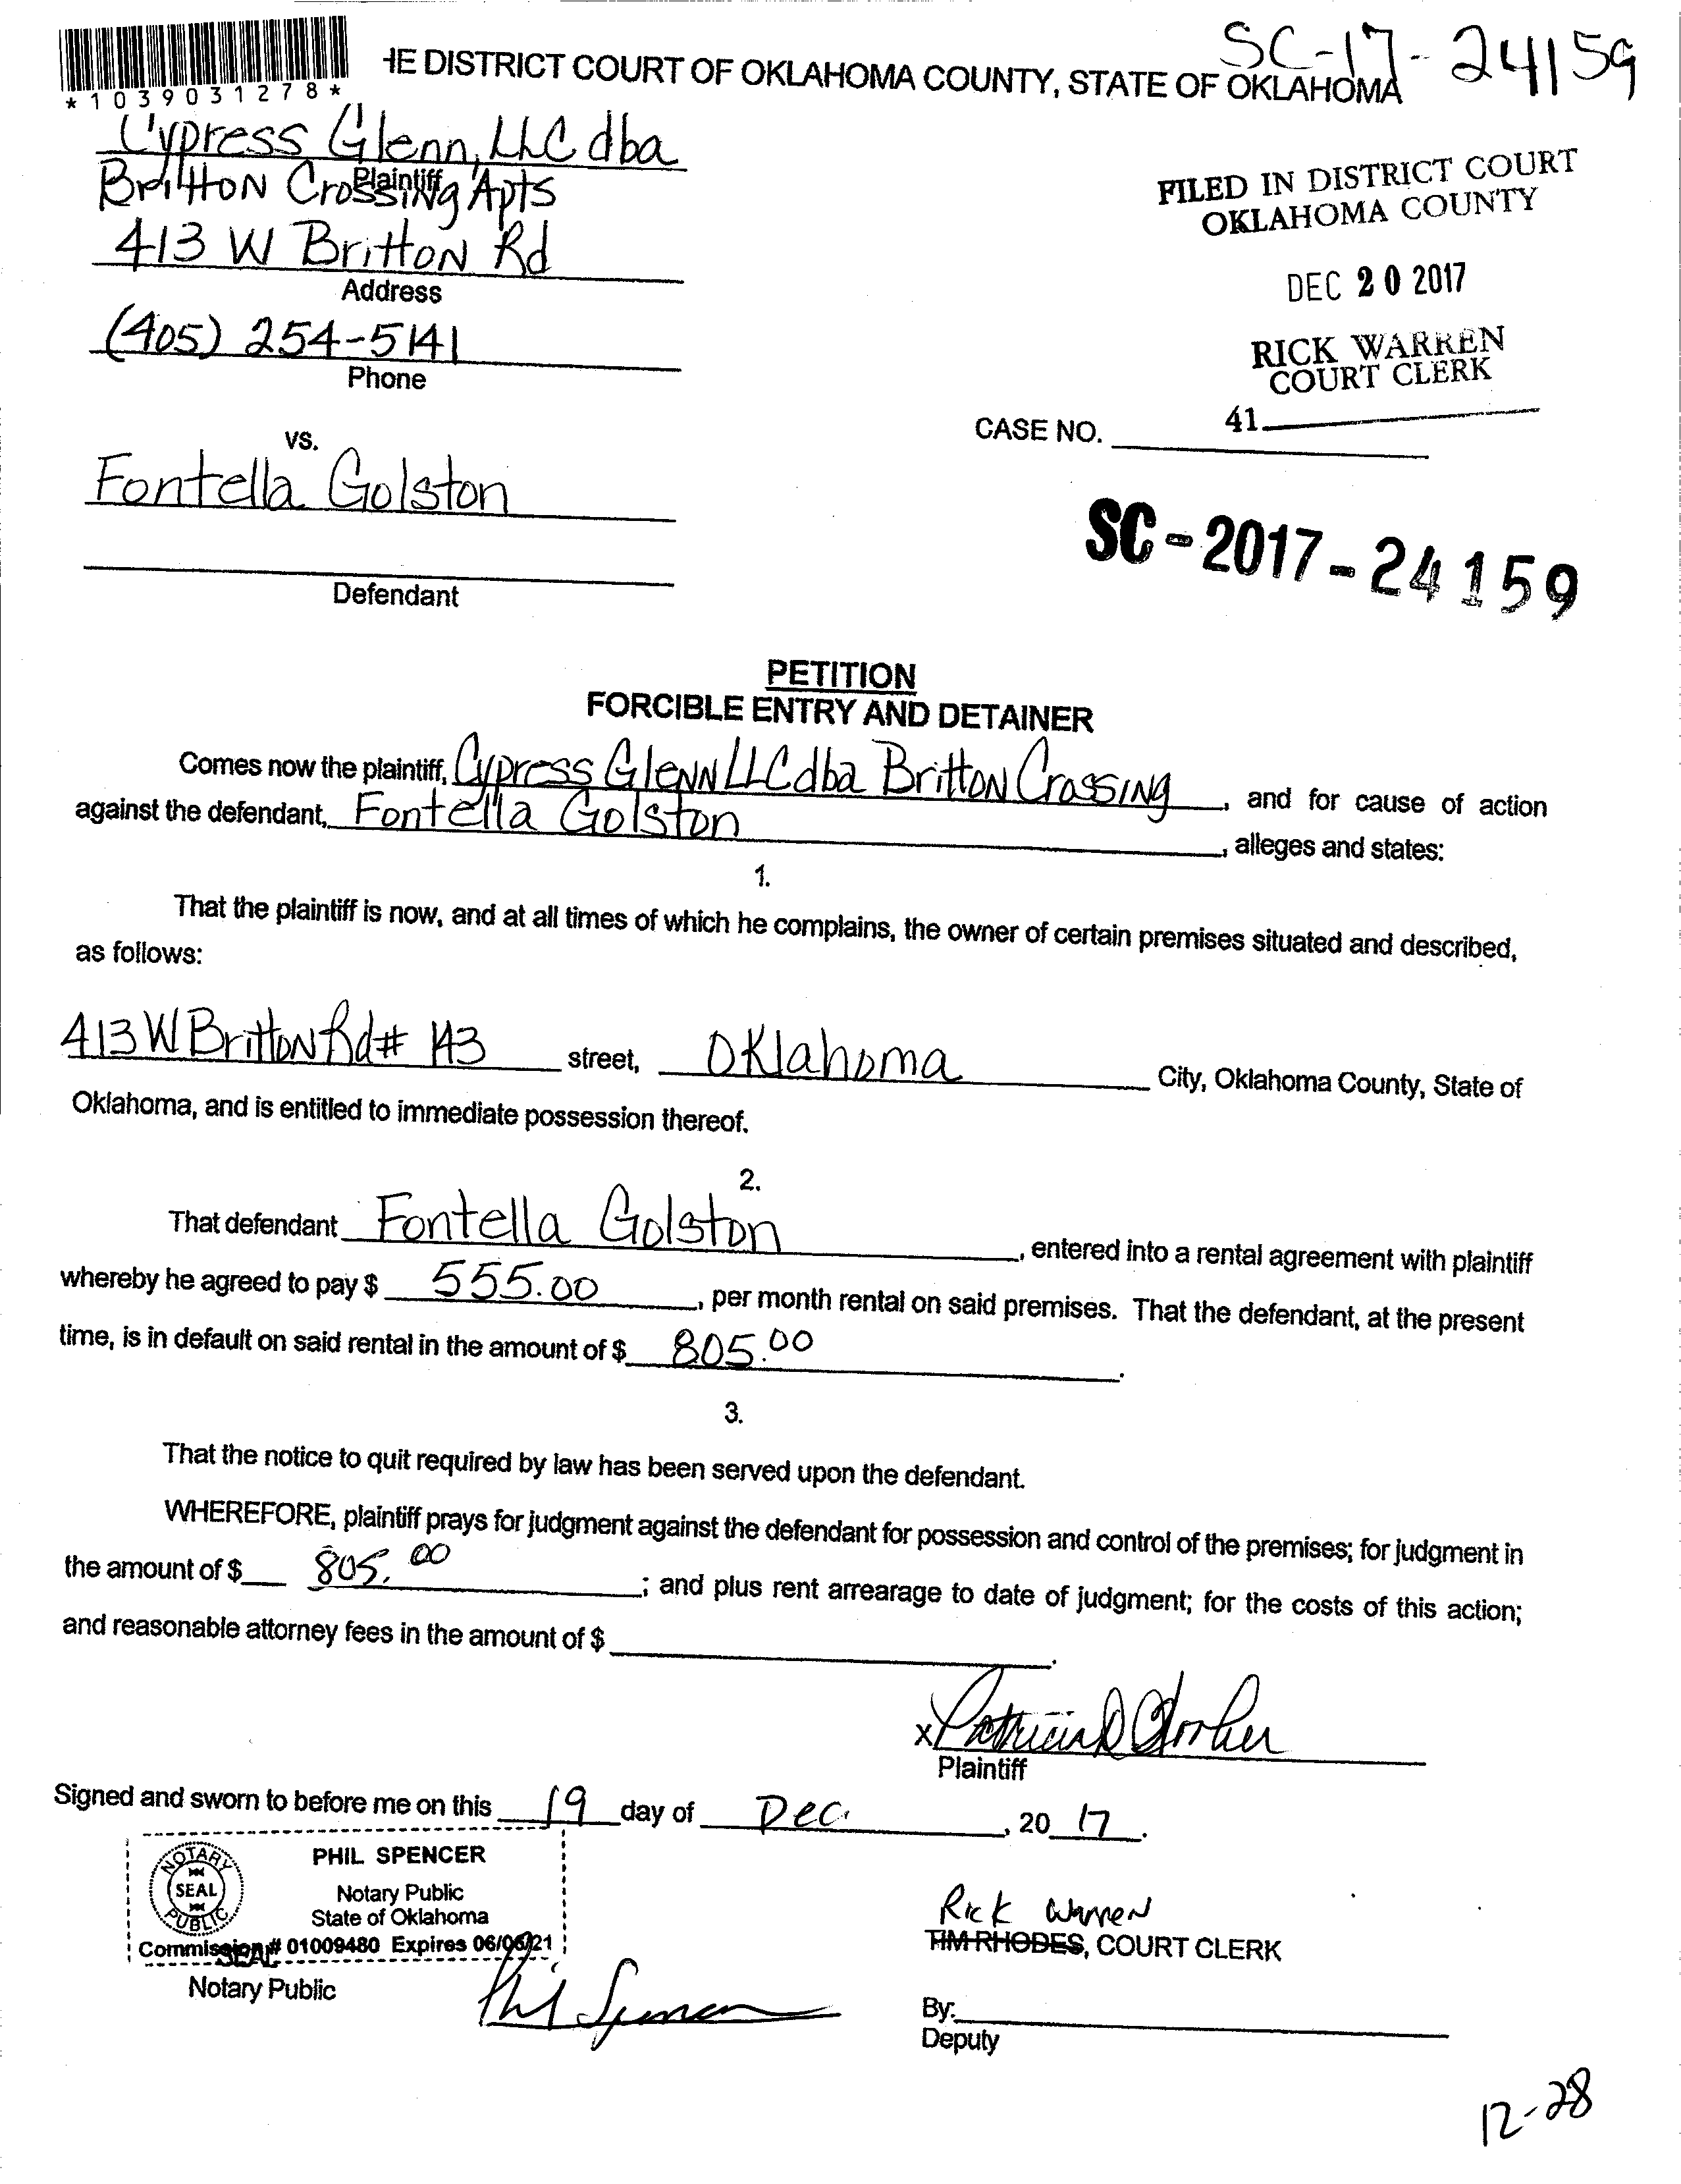 SC-17-24159
*1039031278*
HE DISTRICT COURT OF OKLAHOMA COUNTY, STATE OF OKLAHOMA
Cypress Glenn, LLC dba
Britton Crossing Apts
Plaintiff
413 W Britton Rd
Address
(405) 254-5141
Phone
FILED IN DISTRICT COURT
OKLAHOMA COUNTY
DEC 20 2017
RICK WARREN
COURT CLERK
41
CASE NO.
vs.
Fontella Golston
Defendant
SC-2017-24159
PETITION
FORCIBLE ENTRY AND DETAINER
Comes now the plaintiff, Cypress Glenn LLC dba Britton Crossing, and for cause of action
against the defendant, Fontella Golston, alleges and states:
1.
That the plaintiff is now, and at all times of which he complains, the owner of certain premises situated and described,
as follows:
413 W Britton Rd # 143 street, Oklahoma City, Oklahoma County, State of
Oklahoma, and is entitled to immediate possession thereof.
2.
That defendant Fontella Golston, entered into a rental agreement with plaintiff
whereby he agreed to pay $ 555.00, per month rental on said premises. That the defendant, at the present
time, is in default on said rental in the amount of $ 805.00.
3.
That the notice to quit required by law has been served upon the defendant.
WHEREFORE, plaintiff prays for judgment against the defendant for possession and control of the premises; for judgment in
the amount of $ 805.00; and plus rent arrearage to date of judgment; for the costs of this action;
and reasonable attorney fees in the amount of $ .
x Patricia D
Plaintiff
Signed and sworn to before me on this 19 day of Dec., 20 17.
NOTARY PUBLIC SEAL
PHIL SPENCER
Notary Public
State of Oklahoma
Commission # 01009480 Expires 06/06/21
SEAL
Notary Public
Phil Spencer
Rick Warren
TIM RHODES, COURT CLERK
By:
Deputy
12-28